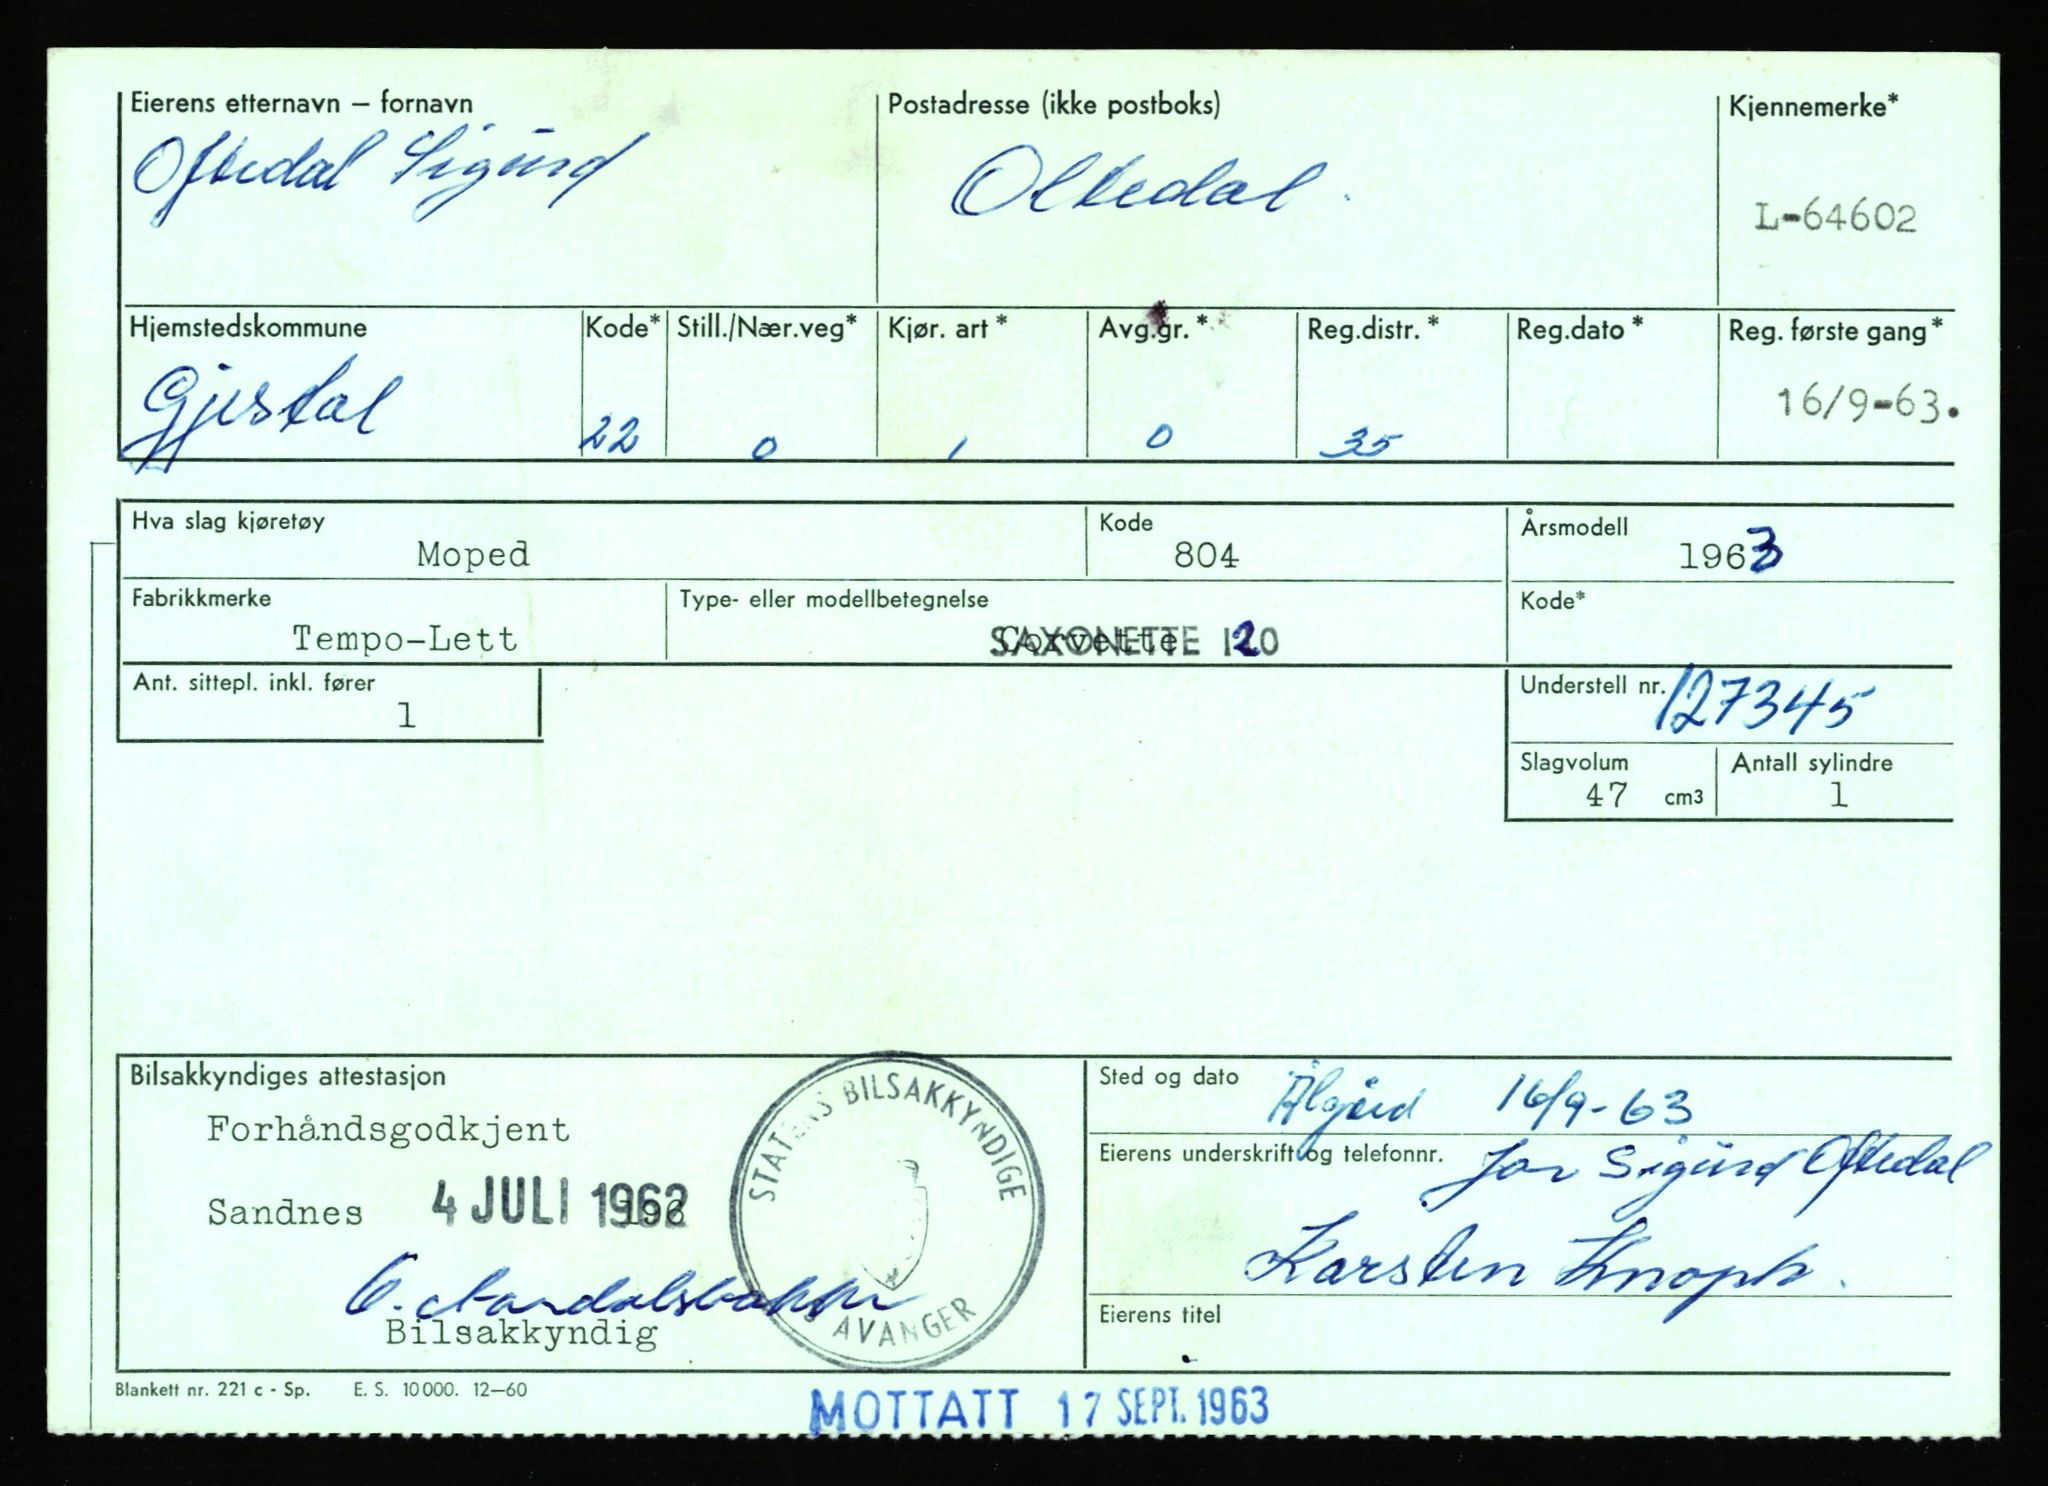 Eierens etternavn – fornavn
Oftedal Sigurd
Postadresse (ikke postboks)
Oltedal.
Kjennemerke*
L-64602
Hjemstedskommune
Gjestal
Kode*
22
Still./Nær.veg*
0
Kjør. art*
1
Avg.gr.*
0
Reg.distr.*
35
Reg.dato*
Reg. første gang*
16/9-63.
Hva slag kjøretøy
Moped
Kode
804
Årsmodell
1963
Fabrikkmerke
Tempo-Lett
Type- eller modellbetegnelse
Corvette
SAXONETTE 120
Kode*
Ant. sittepl. inkl. fører
1
Understell nr.
127345
Slagvolum
47 cm3
Antall sylindre
1
Bilsakkyndiges attestasjon
Forhåndsgodkjent
Sandnes 4 JULI 1962
Bilsakkyndig
STATENS BILSAKKYNDIGE
STAVANGER
Sted og dato
Ålgård 16/9-63
Eierens underskrift og telefonnr.
for Sigurd Oftedal
Karsten Knoph.
Eierens titel
Blankett nr. 221 c - Sp. E. S. 10 000. 12–60
MOTTATT 17 SEPT. 1963